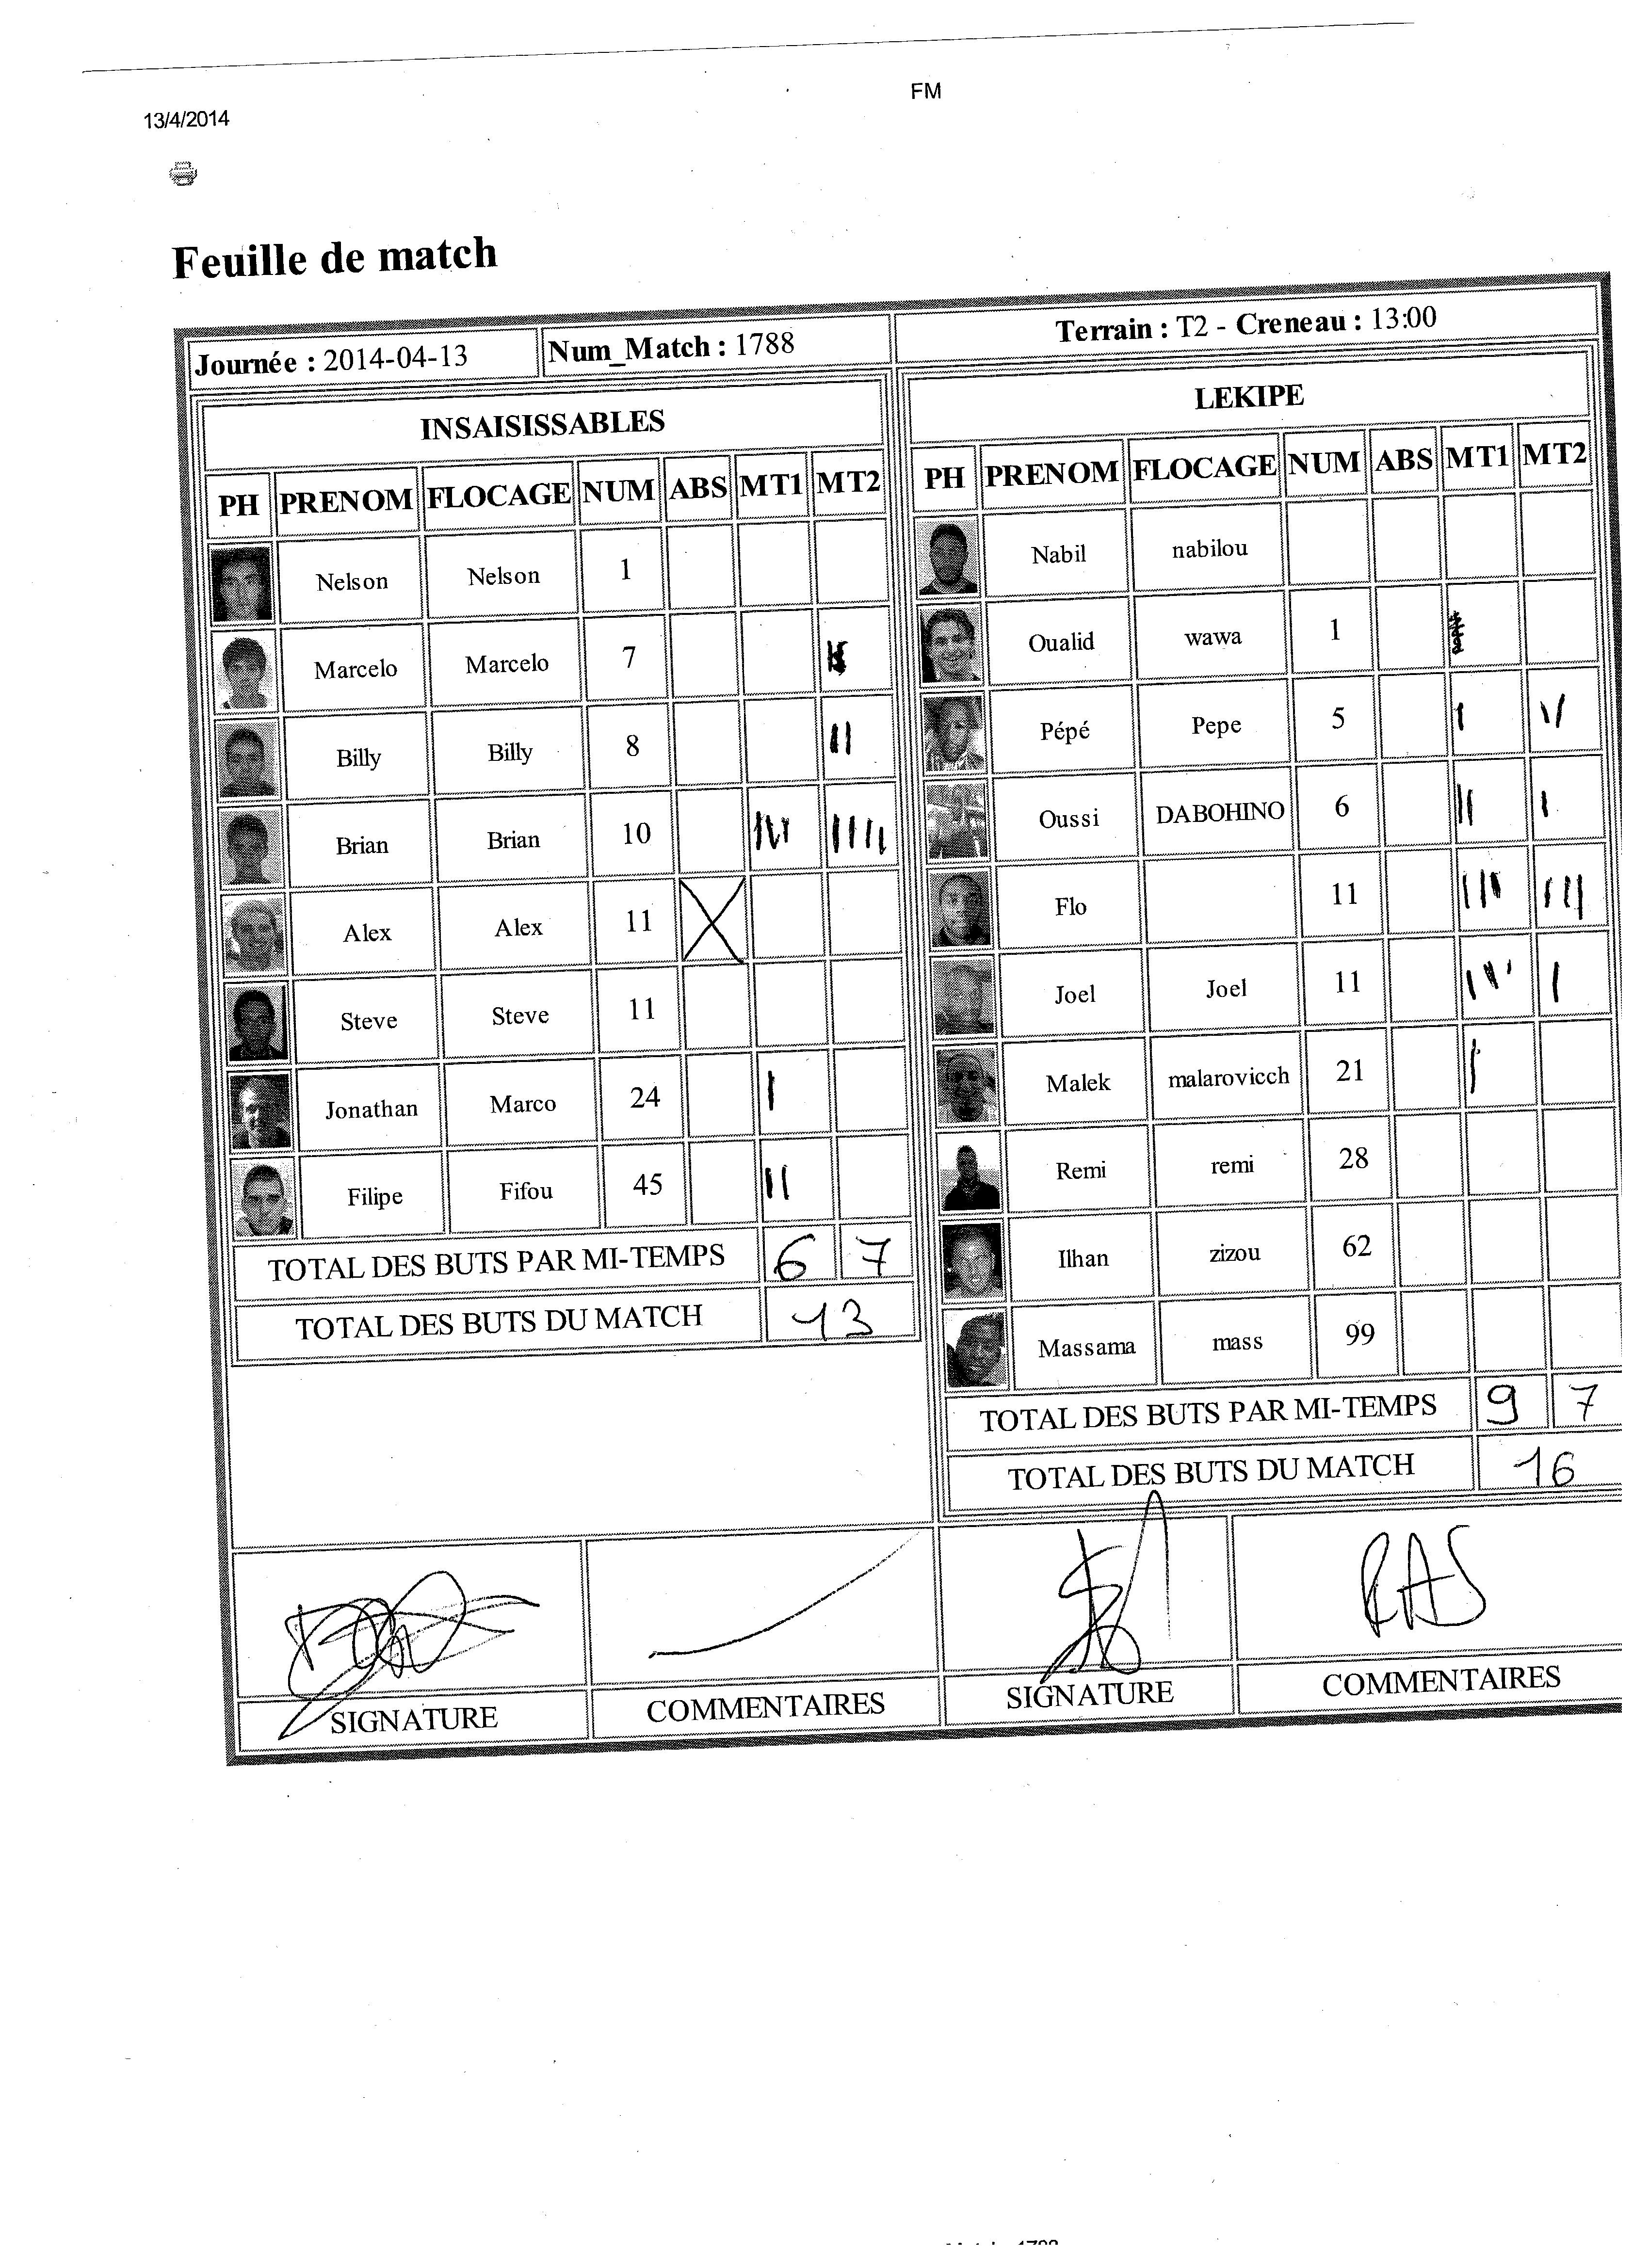 FM
13/4/2014
Feuille de match
Journée : 2014-04-13 Num_Match : 1788 Terrain : T2 - Creneau : 13:00
INSAISISSABLES
PH PRENOM FLOCAGE NUM ABS MT1 MT2
Nelson Nelson 1
Marcelo Marcelo 7
Billy Billy 8 II
Brian Brian 10 III IIII
Alex Alex 11 X
Steve Steve 11
Jonathan Marco 24 I
Filipe Fifou 45 II
TOTAL DES BUTS PAR MI-TEMPS 6 7
TOTAL DES BUTS DU MATCH 13
LEKIPE
PH PRENOM FLOCAGE NUM ABS MT1 MT2
Nabil nabilou
Oualid wawa 1
Pépé Pepe 5 I II
Oussi DABOHINO 6 II I
Flo 11 III III
Joel Joel 11 III I
Malek malarovicch 21 I
Remi remi 28
Ilhan zizou 62
Massama mass 99
TOTAL DES BUTS PAR MI-TEMPS 9 7
TOTAL DES BUTS DU MATCH 16
RAS
SIGNATURE COMMENTAIRES SIGNATURE COMMENTAIRES